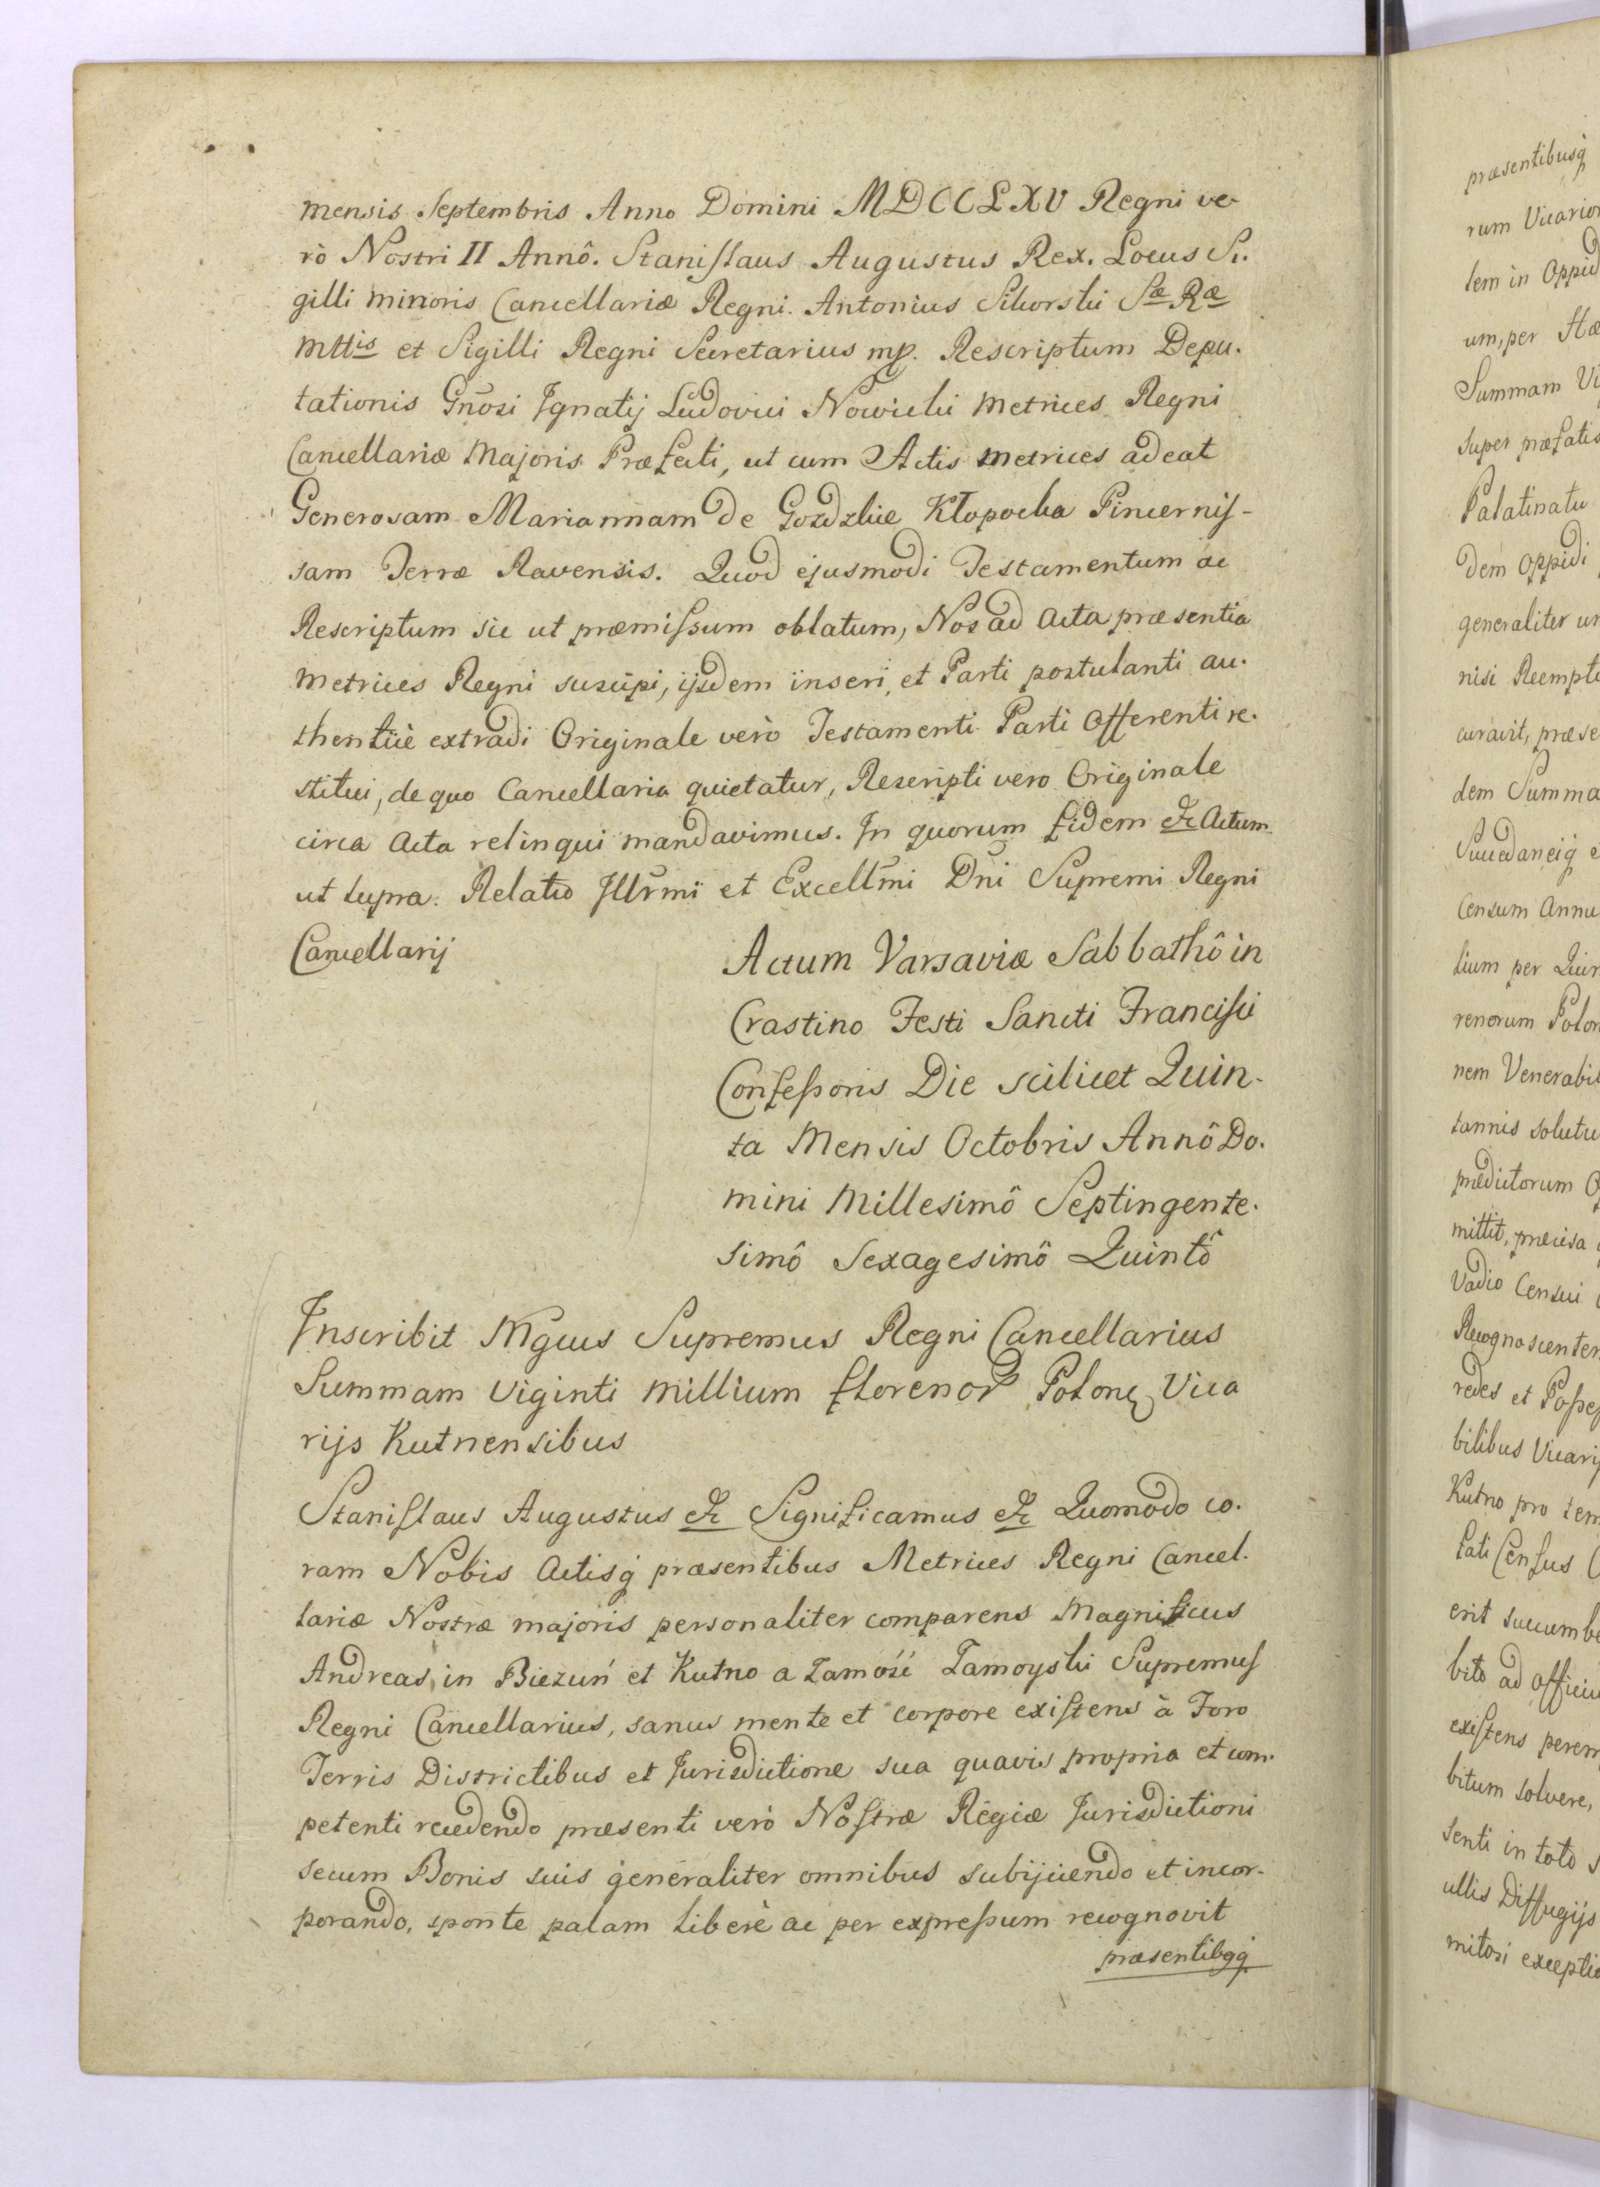 mensis Septembris Anno Domini MDCCLXV Regni ve-
rò Nostri II Annô. Stanislaus Augustus Rex. Locus Si-
gilli minoris Cancellariæ Regni. Antonius Sikorski Sæ Ræ
Mttis et Sigilli Regni Secretarius mp. Rescriptum Depu-
tationis Gnosi Ignatij Ludovici Nowicki Metrices Regni
Cancellariæ Majoris Præfecti, ut cum Actis Metrices adeat
Generosam Mariannam de Gozdzkie Kłopocka Pincernis-
sam Terræ Ravensis. Quod ejusmodi Testamentum ac
Rescriptum sic ut præmissum oblatum, Nos ad Acta præsentia
Metrices Regni suscipi, ijsdem inseri, et Parti postulanti au-
thenticè extradi Originale verò Testamenti Parti Offerenti re-
stitui, de quo Cancellaria quietatur, Rescripti vero Originale
circa Acta relinqui mandavimus. In quorum fidem etc Actum
ut supra. Relatio Illrmi et Excellmi Dni Supremi Regni
Cancellarij
Actum Varsaviæ Sabbathô in
Crastino Festi Sancti Francisci
Confessoris Die scilicet Quin-
ta Mensis Octobris Annô Do-
mini Millesimô Septingente-
simô Sexagesimô Quintô
Inscribit Mgcus Supremus Regni Cancellarius
Summam Viginti Millium florenor Polonę Vica
rijs Kutnensibus
Stanislaus Augustus etc Significamus etc Quomodo co-
ram Nobis Actisq præsentibus Metrices Regni Cancel-
lariæ Nostræ majoris personaliter comparens Magnificus
Andreas in Biezuń et Kutno a Zamość Zamoyski Supremus
Regni Cancellarius, sanus mente et corpore existens à Foro
Terris Districtibus et Jurisdictione sua quavis propria et com-
petenti recedendo præsenti verò Nostræ Regiæ Jurisdictioni
secum Bonis suis generaliter omnibus subijciendo et incor-
porando, sponte palam liberè ac per expressum recognovit
præsentibqq
præsentibusq
rum Vicario
tem in Oppid
um, per
Summam
super præfatis
Palatinatu
dem Oppidi
generaliter
nisi Reempti
curavit,
dem Summa
Succedaneiq
Censum Annu
lium per
renorum Polon
nem Venerabil
tannis solutu
prædictorum
mittit, præcisa
Vadio Censui
Recognoscentem
redes et Posses
bilibus Vicarij
Kutno pro tem
fati Census
erit succumbe
bito ad officiu
existens perem
bitum solvere,
senti in toto
ullis Diffugijs
mitori exceptio